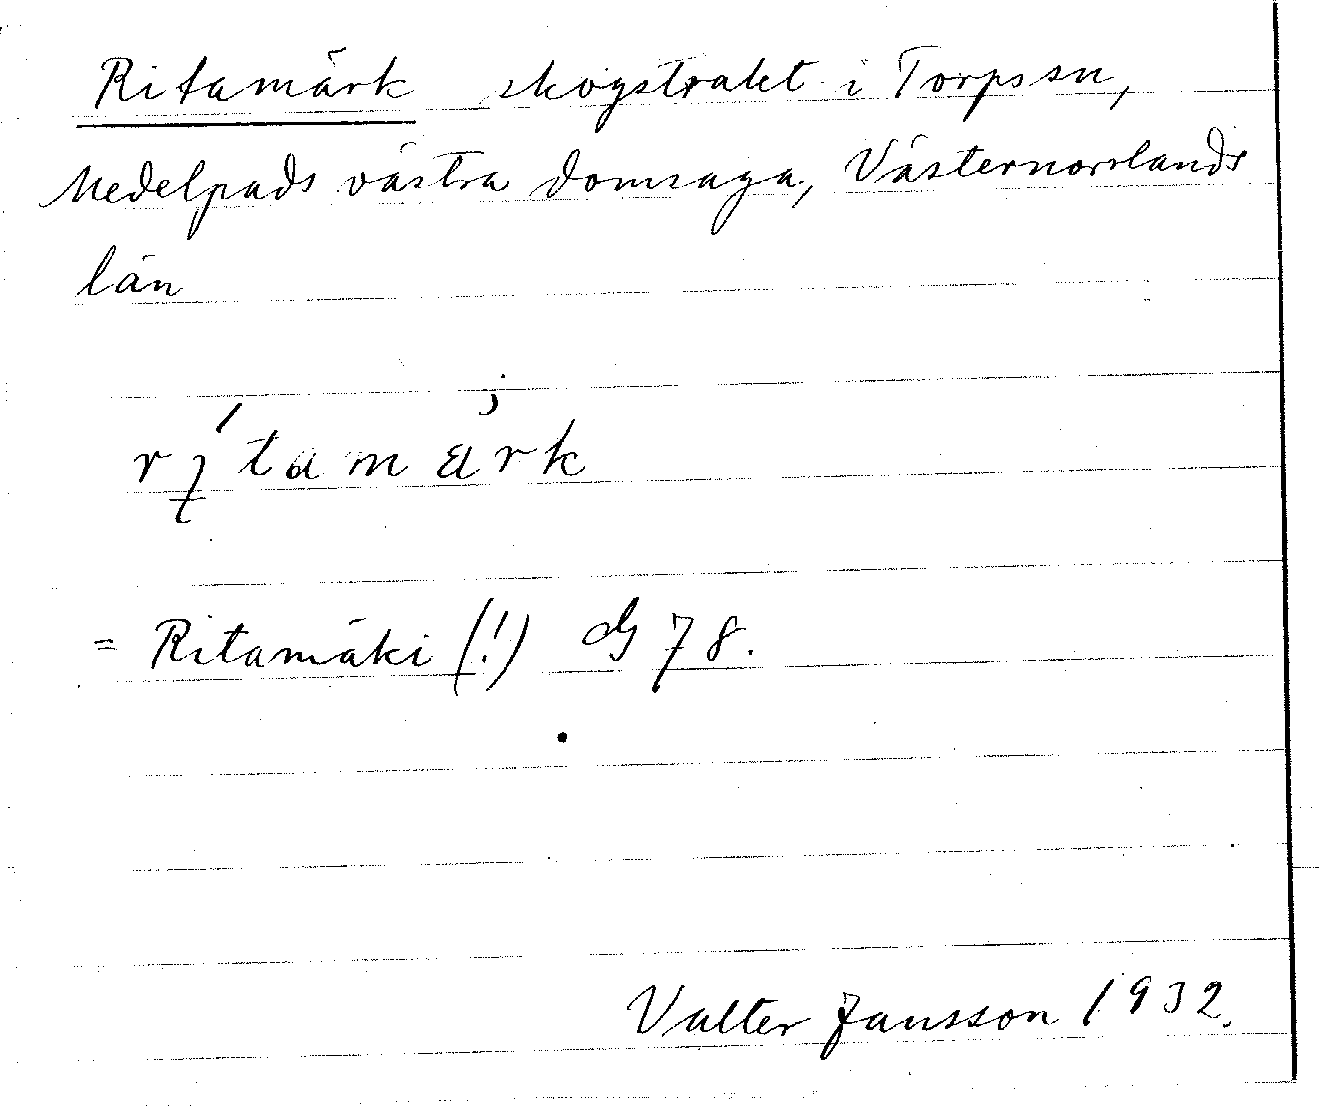 Ritamärk skogstrakt i Torps sn,
Medelpads västra domsaga, Västernorrlands
län
rí̠tamärk
= Ritamäki (!) G 78.
Valter Jansson 1932.